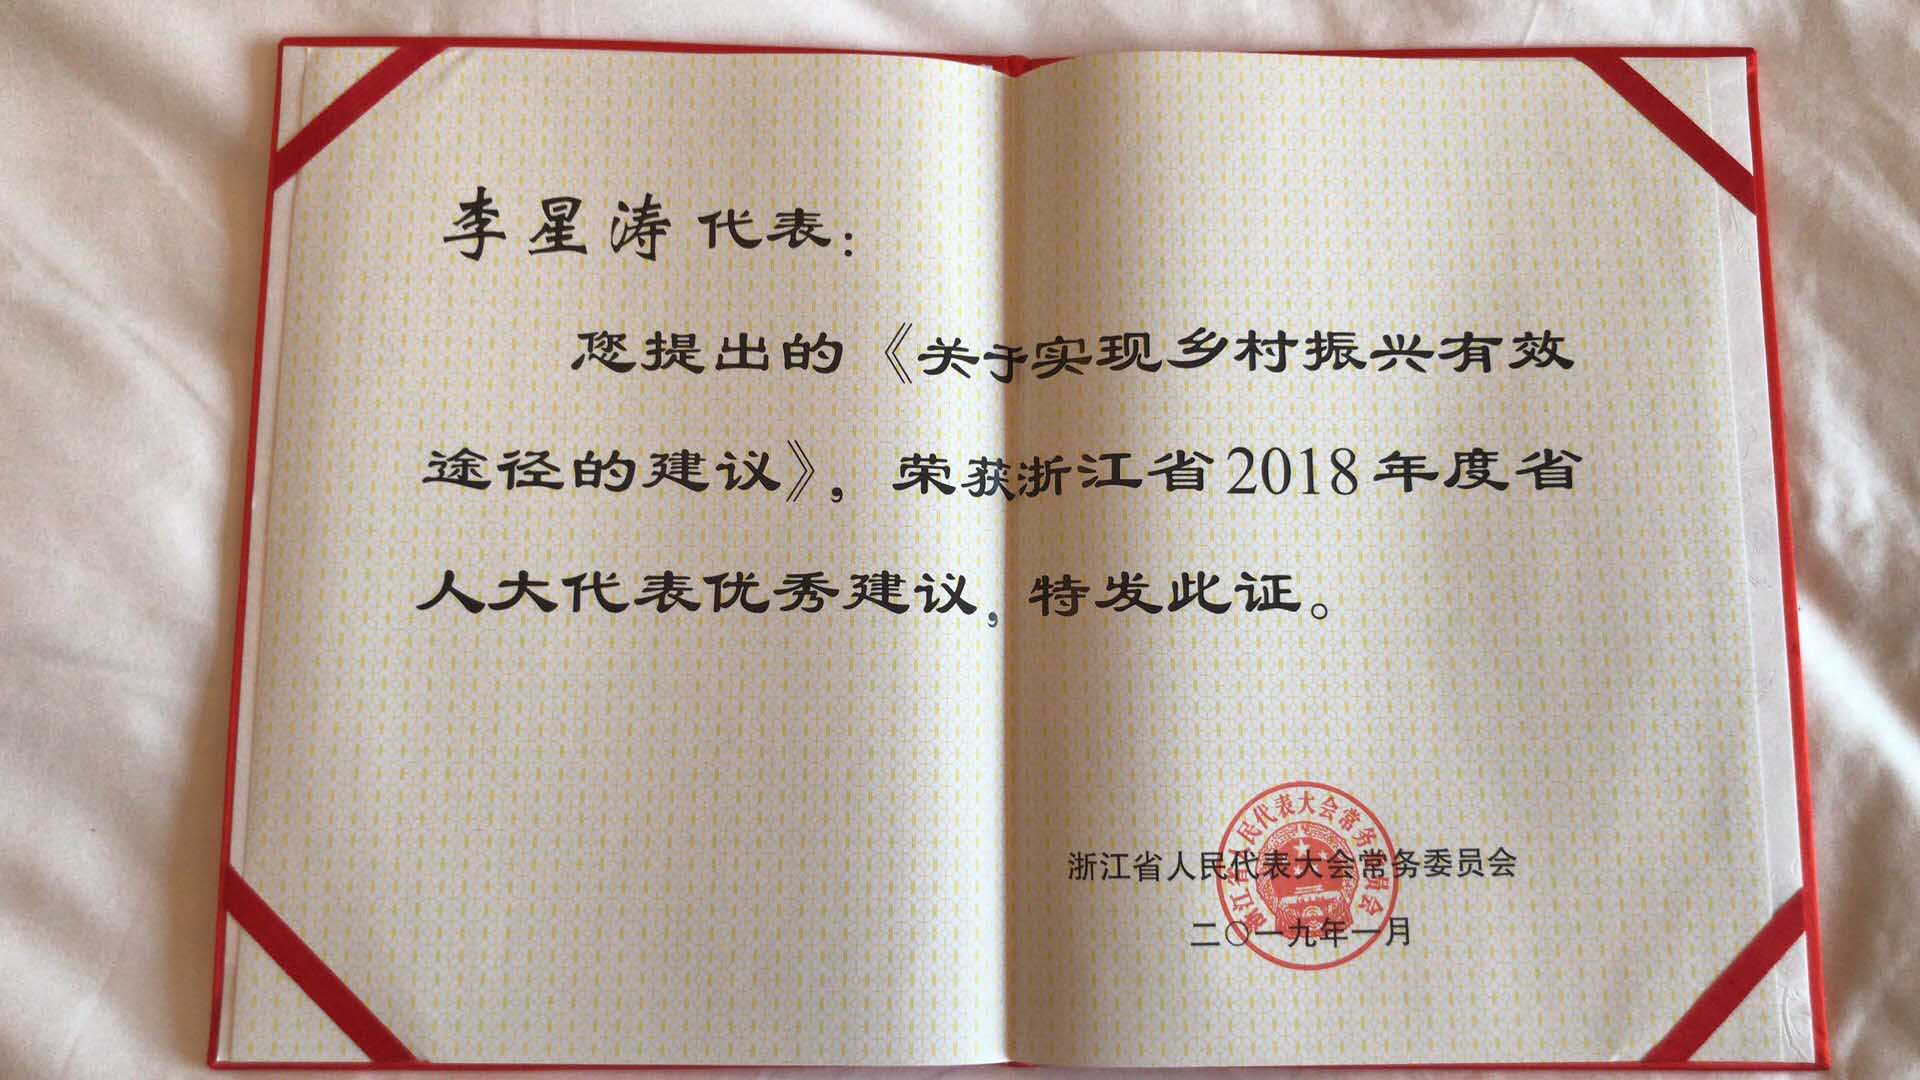 李星涛 代表：
您提出的《关于实现乡村振兴有效
途径的建议》，荣获浙江省2018年度省
人大代表优秀建议，特发此证。
浙江省人民代表大会常务委员会
浙江省人民代表大会常务委员会
二〇一九年一月